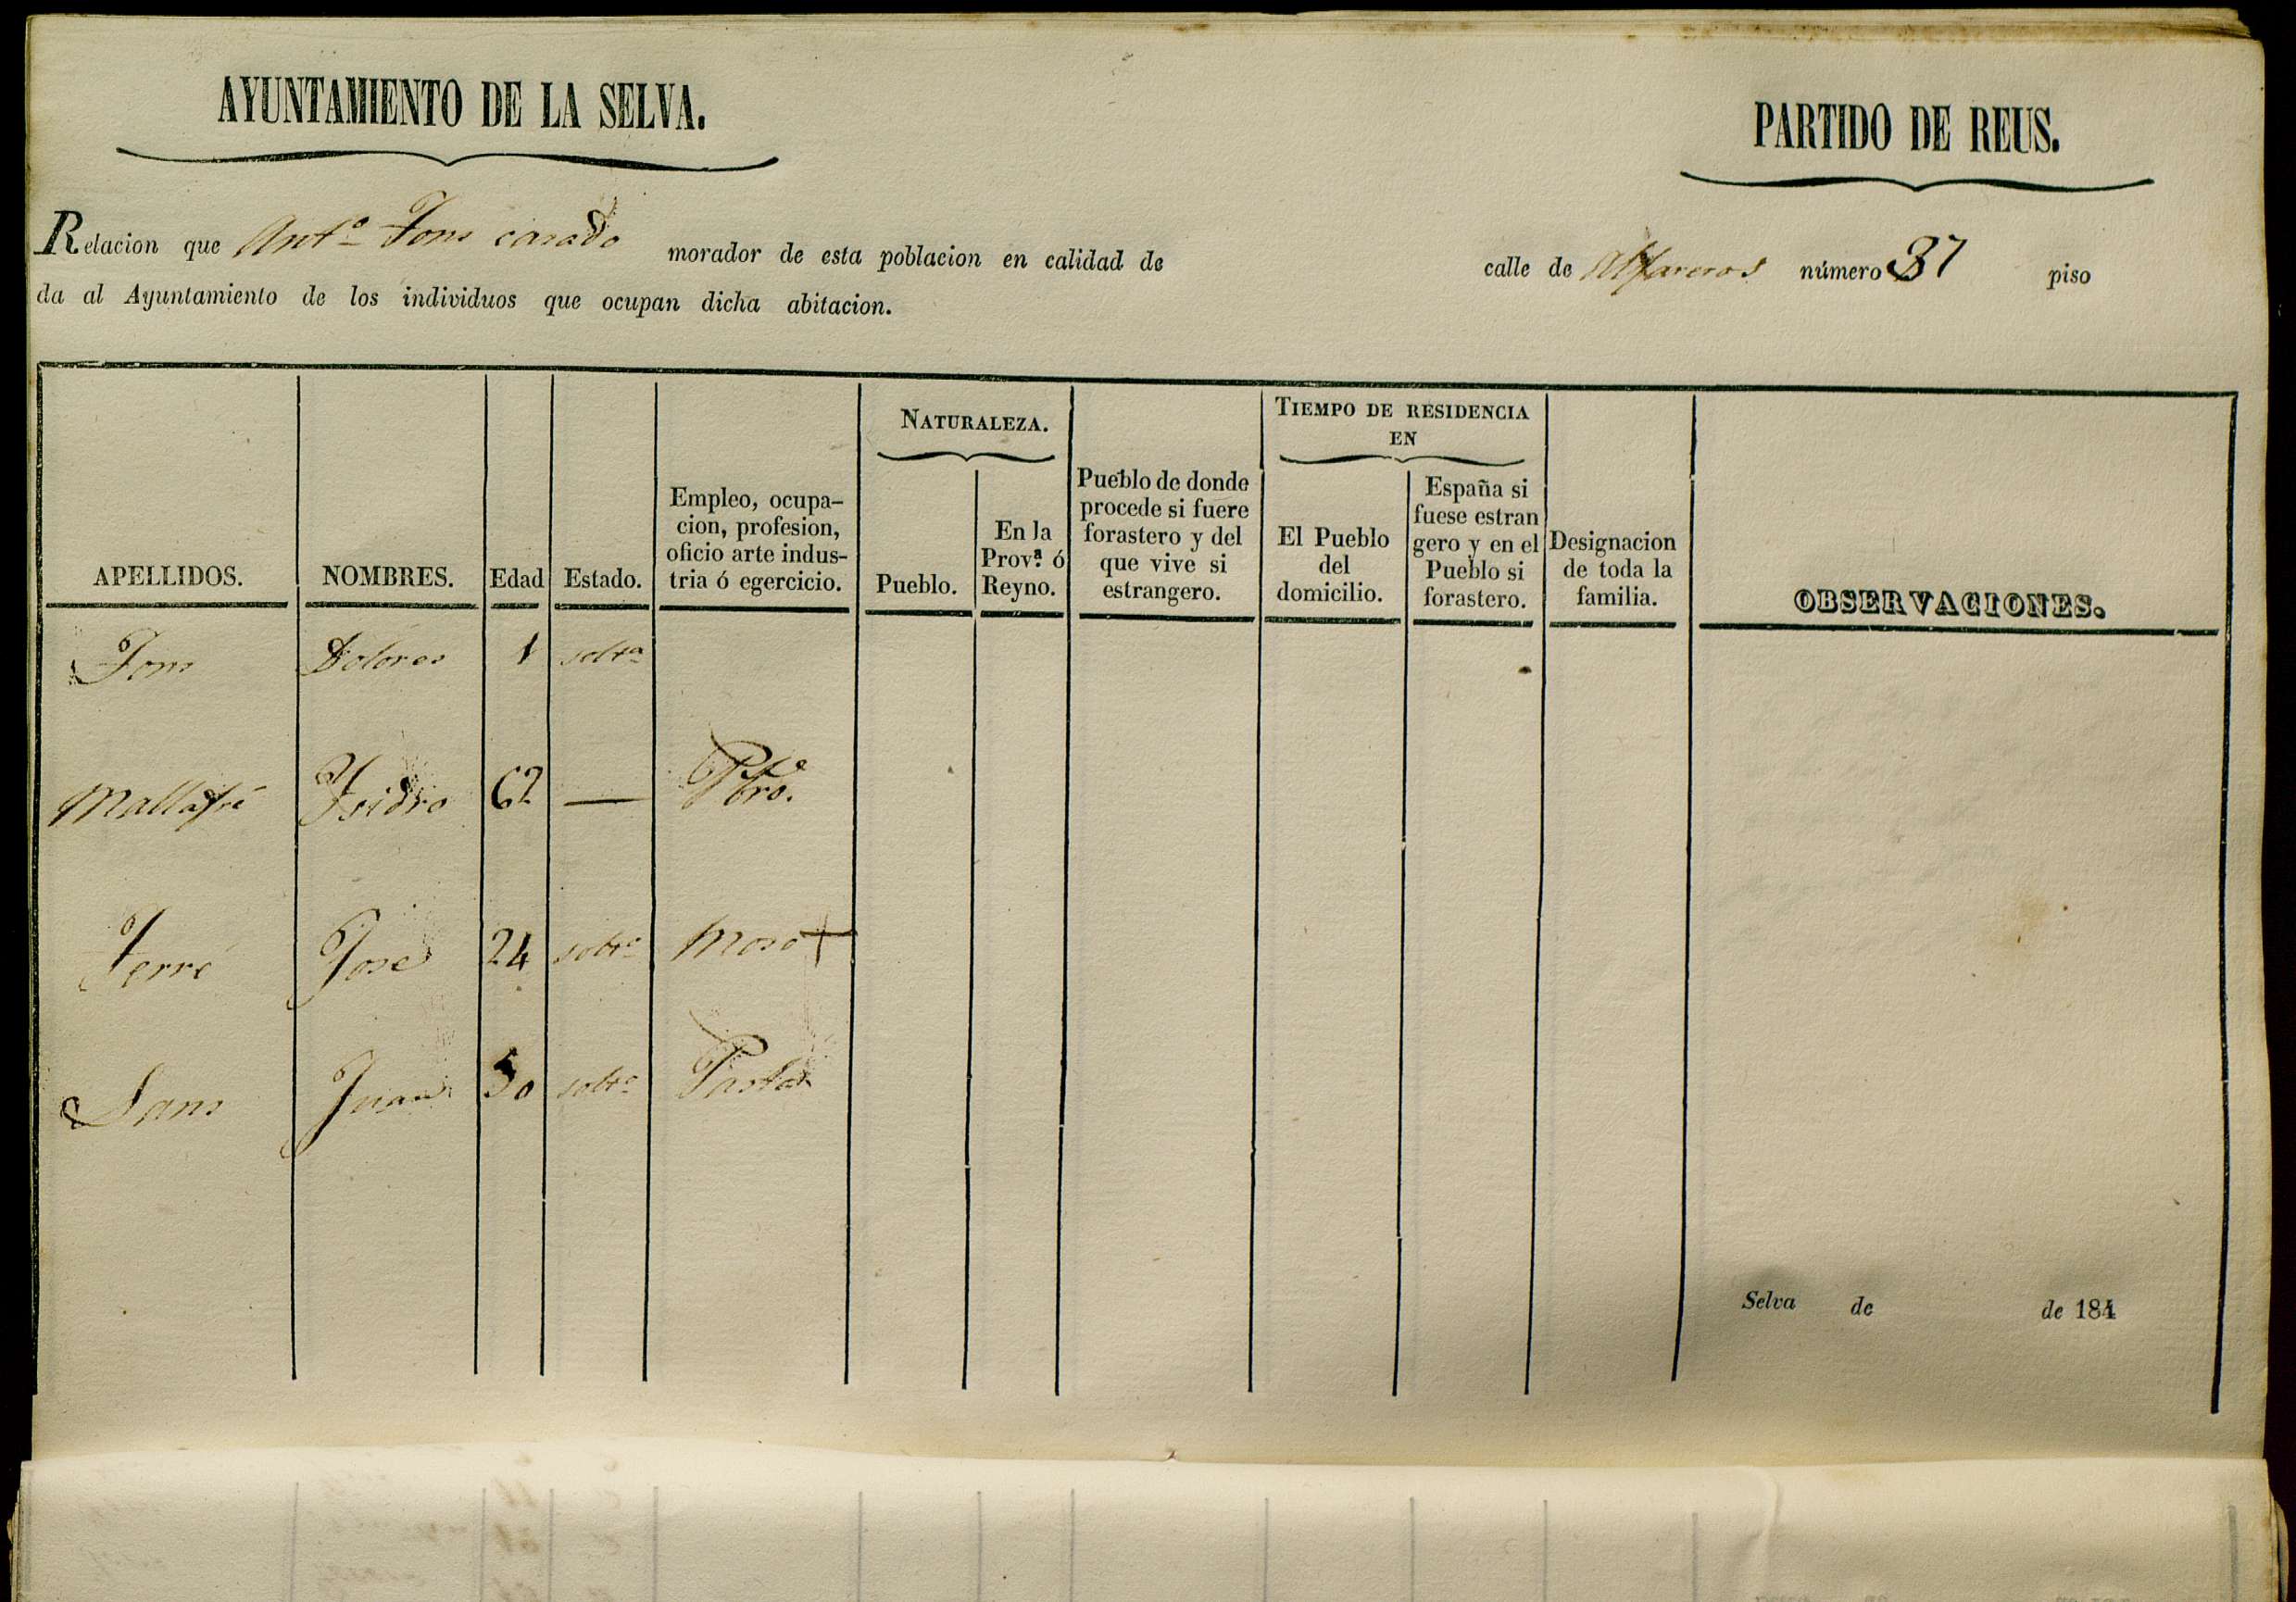 AYUNTAMIENTO DE LA SELVA.
PARTIDO DE REUS.
Relacion que Antº Fons casado morador de esta poblacion en calidad de calle de Alfareros número 37 piso
da al Ayuntamiento de los individuos que ocupan dicha abitacion.
APELLIDOS.
NOMBRES.
Edad
Estado.
Empleo, ocupa-
cion, profesion,
oficio arte indus-
tria ó egercicio.
NATURALEZA.
Pueblo.
En la
Provª ó
Reyno.
Pueblo de donde
procede si fuere
forastero y del
que vive si
estrangero.
TIEMPO DE RESIDENCIA
EN
El Pueblo
del
domicilio.
España si
fuese estran
gero y en el
Pueblo si
forastero.
Designacion
de toda la
familia.
OBSERVACIONES.
Fons Dolores 1 soltª
Mallafré Ysidro 62 — Pbro.
Ferré Jose 24 soltº Moso
Sans Juan 50 soltº Pastor
Selva de de 184